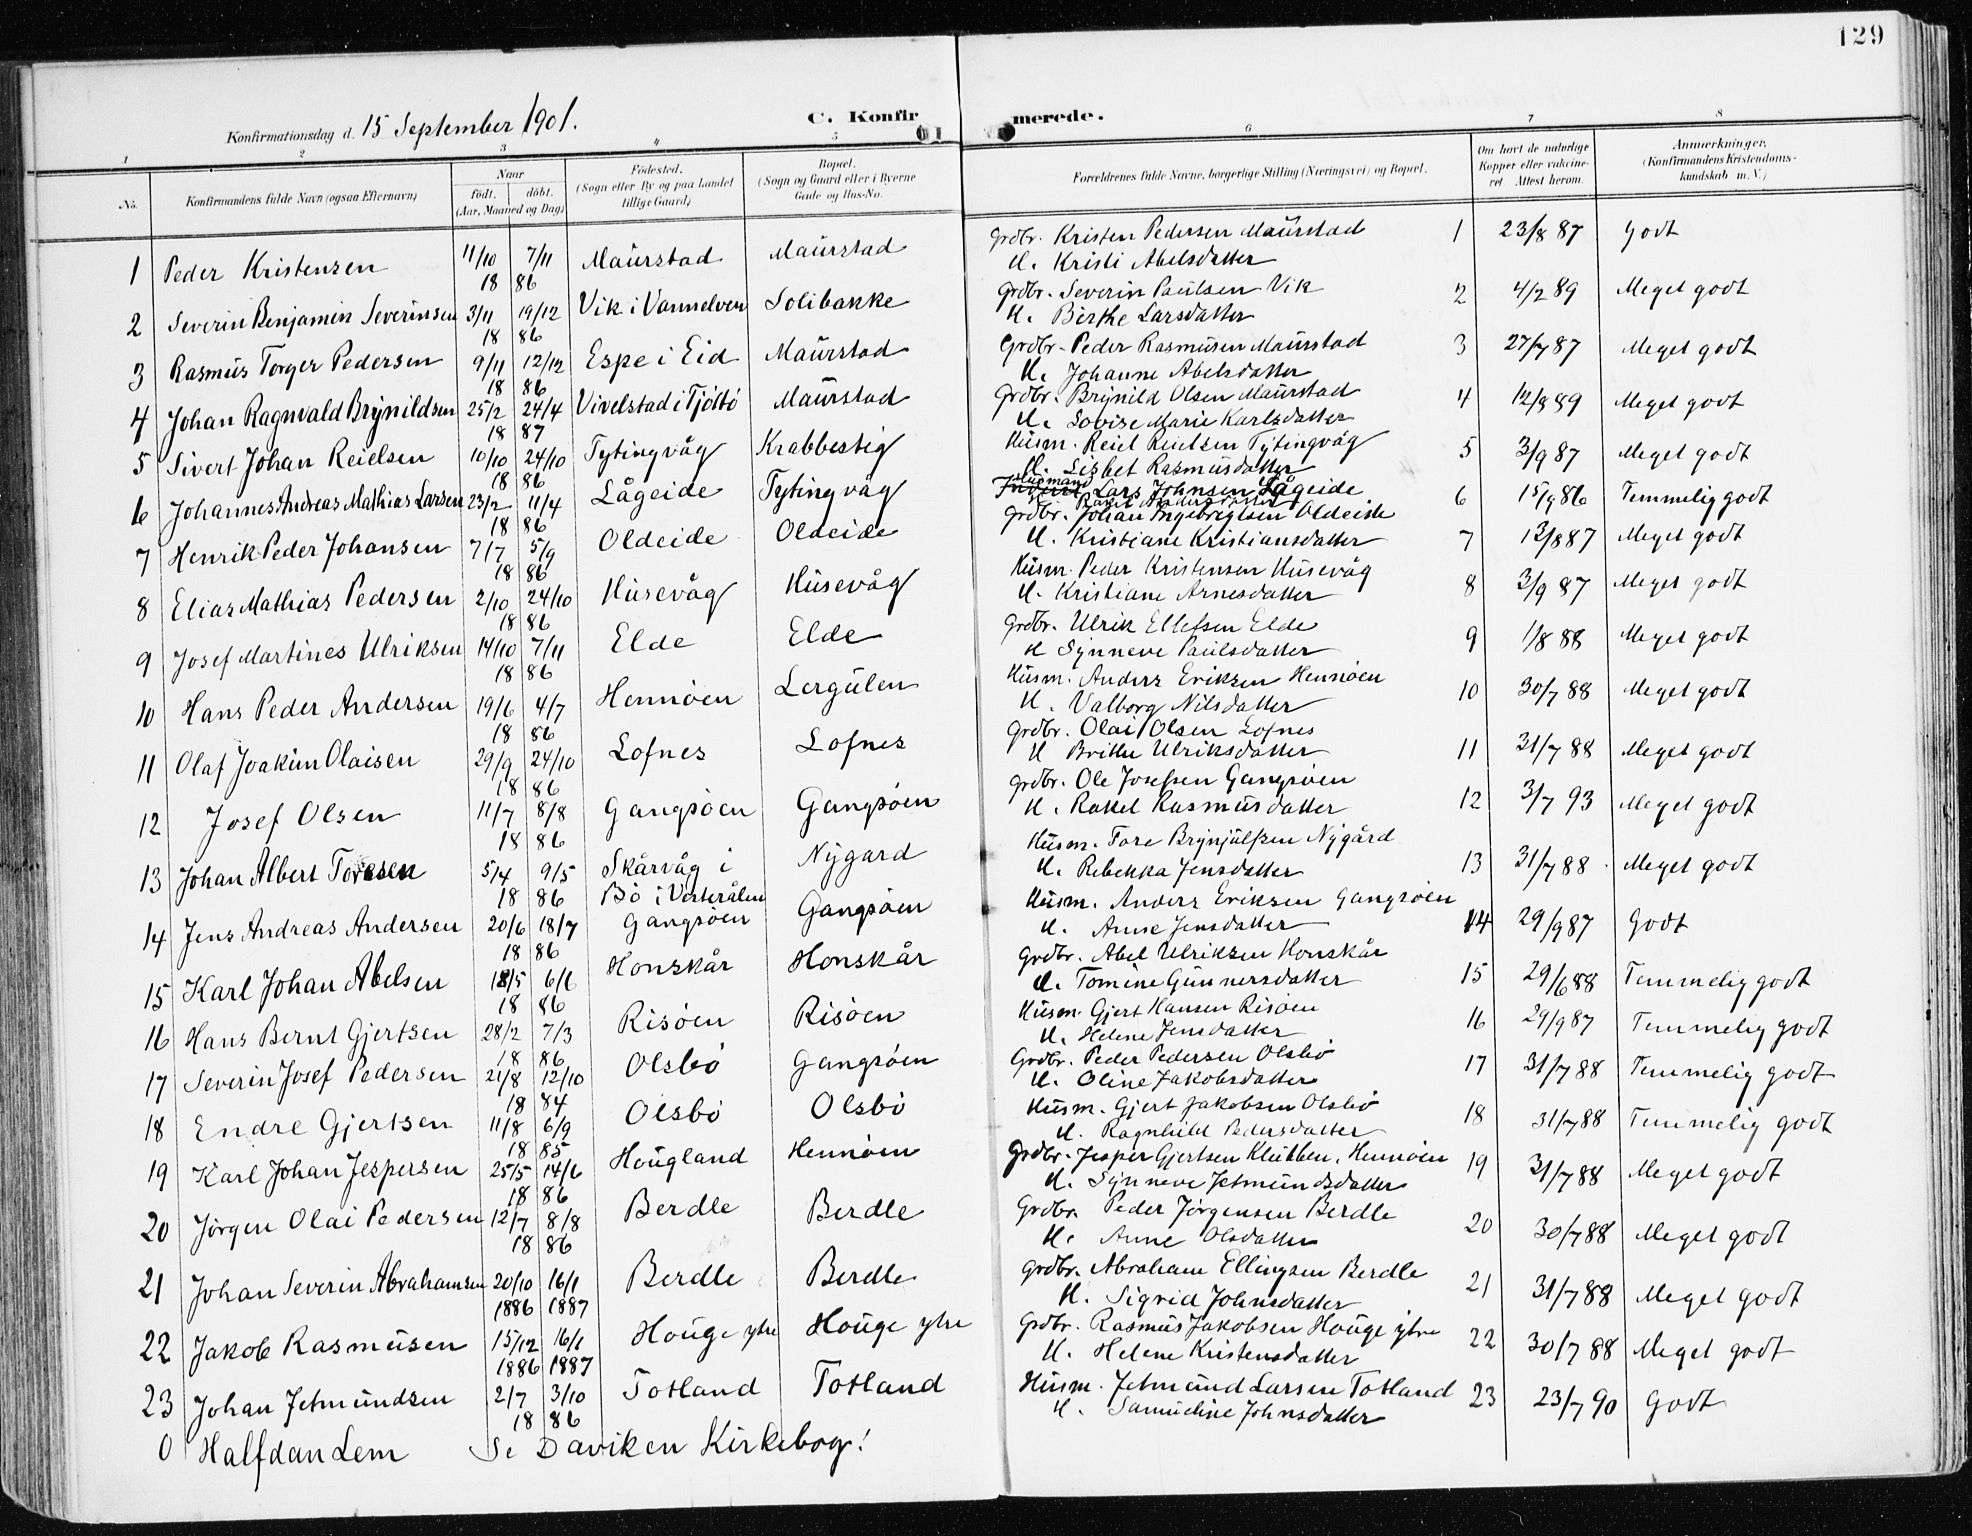 129
Konfirmationsdag d. 15 September 1901.
C. Konfirmerede.
1 2 3 4 5 6 7 8
No. Konfirmandens fulde Navn (ogsaa Efternavn) Naar født. døbt. (Aar, Maaned og Dag) Fødested. (Sogn eller By og paa Landet tillige Gaard) Bopæl. (Sogn og Gaard eller i Byerne Gade og Hus-No. Forældrenes fulde Navne, borgerlige Stilling (Næringsvei) og Bopæl. Om havt de naturlige Kopper eller vaccineret. Attest herom. Anmærkninger. (Konfirmandens Kristendomskundskab m. V.)
1 Peder Kristensen 11/10 7/11 Maurstad Maurstad Grdbr. Kristen Pedersen Maurstad 1 23/8 87 Godt
18 86 H. Kristi Abelsdatter
2 Severin Benjamin Severinsen 3/11 19/12 Vik i Vannelven Solibakke Grdbr. Severin Paulsen Vik 2 4/7 89 Meget godt
18 86 H. Birthe Larsdatter
3 Rasmus Torger Pedersen 9/11 12/12 Espe i Eid Maurstad Grdbr. Peder Rasmusen Maurstad 3 27/7 87 Meget godt
18 86 H. Johanne Abelsdatter
4 Johan Ragnvald Brynildsen 25/2 24/4 Vivelstad i Tjøtbø Maurstad Grdbr. Brynild Olsen Maurstad 4 12/8 89 Meget godt
18 87 H. Lovise Marie Karlsdatter
5 Sivert Johan Reielsen 10/10 24/10 Tytingvåg Krabbestig Husm. Reiel Reielsen Tytingvåg 5 3/9 87 Meget godt
18 86 H. Lisbet Rasmusdatter
6 Johannes Andreas Mathias Larsen 23/2 11/4 Lågeide Tytingvåg Husmand Lars Johnsen Lågeide 6 15/9 86 Temmelig godt
18 86 H. Andersdatter
7 Henrik Peder Johansen 7/7 5/9 Oldeide Oldeide Grdbr. Johan Ingebrigtsen Oldeide 7 13/8 87 Meget godt
18 86 H. Kristiane Kristiansdatter
8 Elias Mathias Pedersen 2/10 24/10 Husevåg Husevåg Husm. Peder Kristensen Husevåg 8 3/9 87 Meget godt
18 86 H. Kristiane Arnesdatter
9 Josef Martines Ulriksen 14/10 7/11 Elde Elde Grdbr. Ulrik Ellefsen Elde 9 1/8 88 Meget godt
18 86 H Synneve Paulsdatter
10 Hans Peder Andersen 19/6 4/7 Hennøen Lergulen Husm. Anders Eriksen Hennøen 10 30/7 88 Meget godt
18 86 H. Valborg Nilsdatter
11 Olaf Joakim Olaisen 29/9 24/10 Lofnes Lofnes Grdbr. Olai Olsen Lofnes 11 31/7 88 Meget godt
18 86 H Brithe Ulriksdatter
12 Josef Olsen 11/7 8/8 Gangsøen Gangsøen Grdbr. Ole Josefsen Gangsøen 12 3/7 93 Meget godt
18 86 H. Rakel Rasmusdatter
13 Johan Albert Toresen 5/4 9/5 Skårvåg i Nygard Husm. Tore Brynjulfsen Nygård 13 31/7 88 Meget godt
18 86 Bø i Vesterålen H. Rebekka Jensdatter
14 Jens Andreas Andersen 20/6 18/7 Gangsøen Gangsøen Husm. Anders Eriksen Gangsøen 14 29/9 87 Godt
18 86 H. Anne Jensdatter
15 Karl Johan Abelsen 18/5 6/6 Honskår Honskår Grdbr. Abel Ulriksen Honskår 15 29/6 88 Temmelig godt
18 86 H. Tomine Gunnersdatter
16 Hans Bernt Gjertsen 28/2 7/3 Risøen Risøen Husm. Gjert Hansen Risøen 16 29/9 87 Temmelig godt
18 86 H. Helene Jensdatter
17 Severin Josef Pedersen 21/8 12/10 Olsbø Gangsøen Grdbr. Peder Pedersen Olsbø 17 31/7 88 Temmelig godt
18 84 H. Oline Jakobsdatter
18 Endre Gjertsen 11/8 6/9 Olsbø Olsbø Husm. Gjert Jakobsen Olsbø 18 31/7 88 Temmelig godt
18 85 H. Ragnhild Pedersdatter
19 Karl Johan Jespersen 25/5 14/6 Hougland Hennøen Grdbr. Jesper Gjertsen Klubben, Hennøen 19 31/7 88 Meget godt
18 86 H. Synneve Jetmundsdatter
20 Jørgen Olai Pedersen 12/7 8/8 Berdle Berdle Grdbr. Peder Jørgensen Berdle 20 30/7 88 Meget godt
18 86 H. Anne Olsdatter
21 Johan Severin Abrahamsen 20/10 16/1 Berdle Berdle Grdbr. Abraham Ellingsen Berdle 21 31/7 88 Meget godt
1886 1887 H. Sigrid Johnsdatter
22 Jakob Rasmusen 15/12 16/1 Houge ytre Houge ytre Grdbr. Rasmus Jakobsen Houge ytre 22 30/7 88 Meget godt
1886 1887 H. Helene Kristensdatter
23 Johan Jetmundsen 2/7 3/10 Totland Totland Husm. Jetmund Larsen Totland 23 23/7 90 Godt
18 86 H. Samueline Johnsdatter
0 Halfdan Lem Se Daviken Kirkebog!